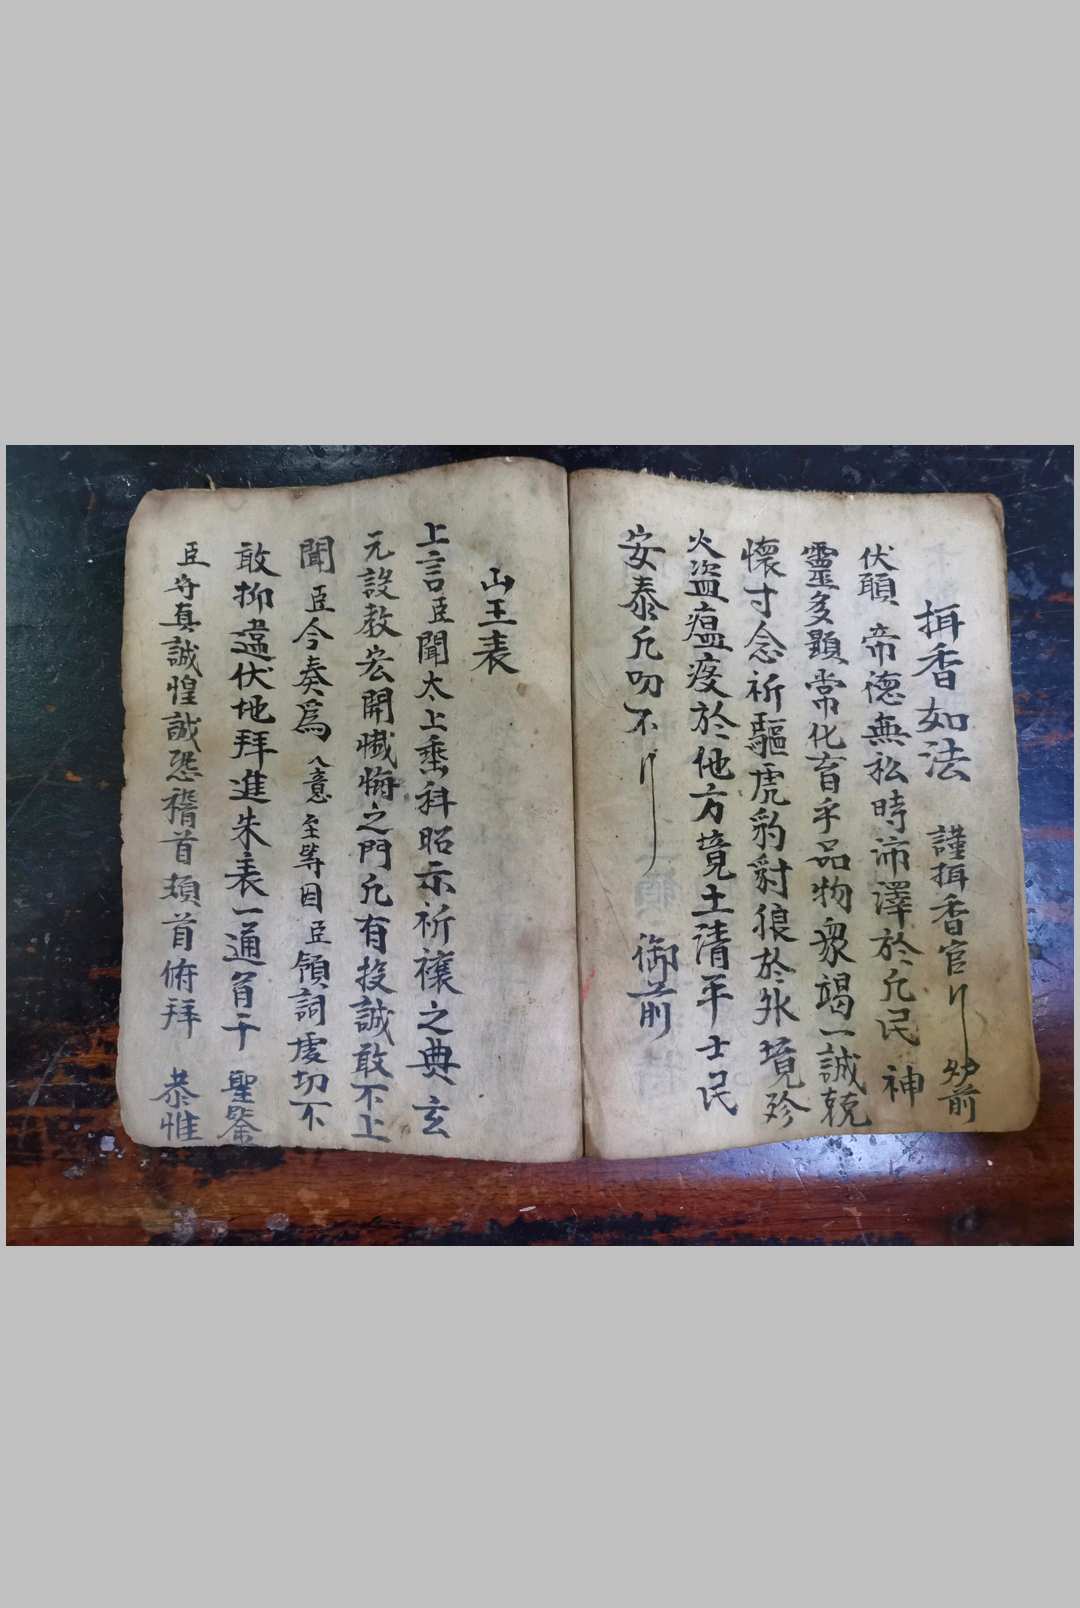 挕香如法 謹挕香官 前
伏願 帝德無私時沛澤於凢民 神
靈多顯常化育乎品物衆竭一誠兢
懷寸念祈驅虎豹豺狼於外境殄
火盜瘟疫於他方境土清平士民
安泰凢叨不 御前
山王表
上言臣聞太上垂科昭示祈禳之典玄
元設教宏開懴悔之門凢有投誠敢不上
聞臣今奏爲入意至等因臣領詞虔切不
敢抑違伏地拜進朱表一通旨干 聖鉴
臣守真誠惶誠恐稽首頓首俯拜 恭惟